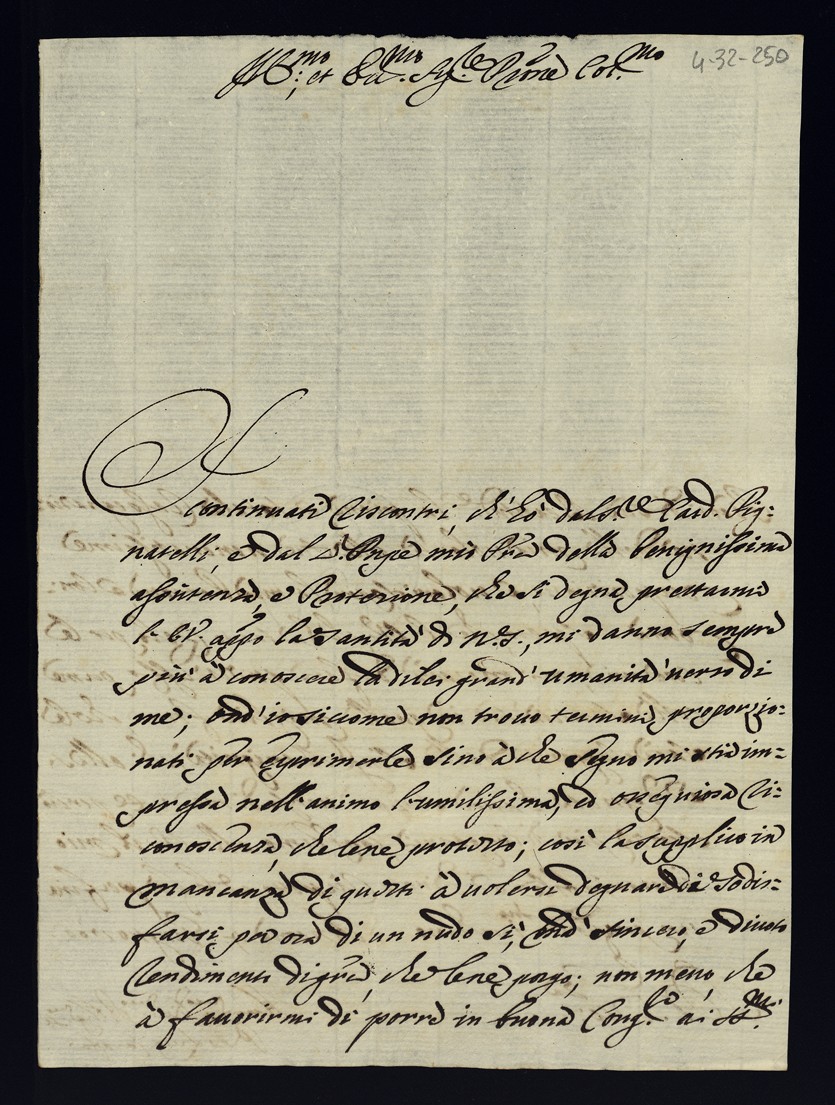 Ill.mo et Ecc.mo Sig.re P.rone Col.mo
4-32-250
I continuati riscontri, ch'hò dal S.r Card. Pig:
natelli, e dal P. mio della benignissima
assistenza, e Protezione, che si degna prestarmi
l'E.V. app.o la Santità di N.S., mi danno sempre
più à conoscere la di lei grand'umanità verso di
me; ond'io siccome non trovo termini proporzio:
nati per esprimerle sino à che segno mi stia im=
pressa nell'animo l'umilissima, ed ossequiosa ri:
conoscenza, che lene protesto; così la supplico in
mancanza di questi à volersi degnare di sodis=
farsi per ora di un nudo sì, mà sincero, e divoto
rendimento di gr.e, che lene porgo; non meno, che
à favorirmi di porre in buona Cong.re ai SS.mi